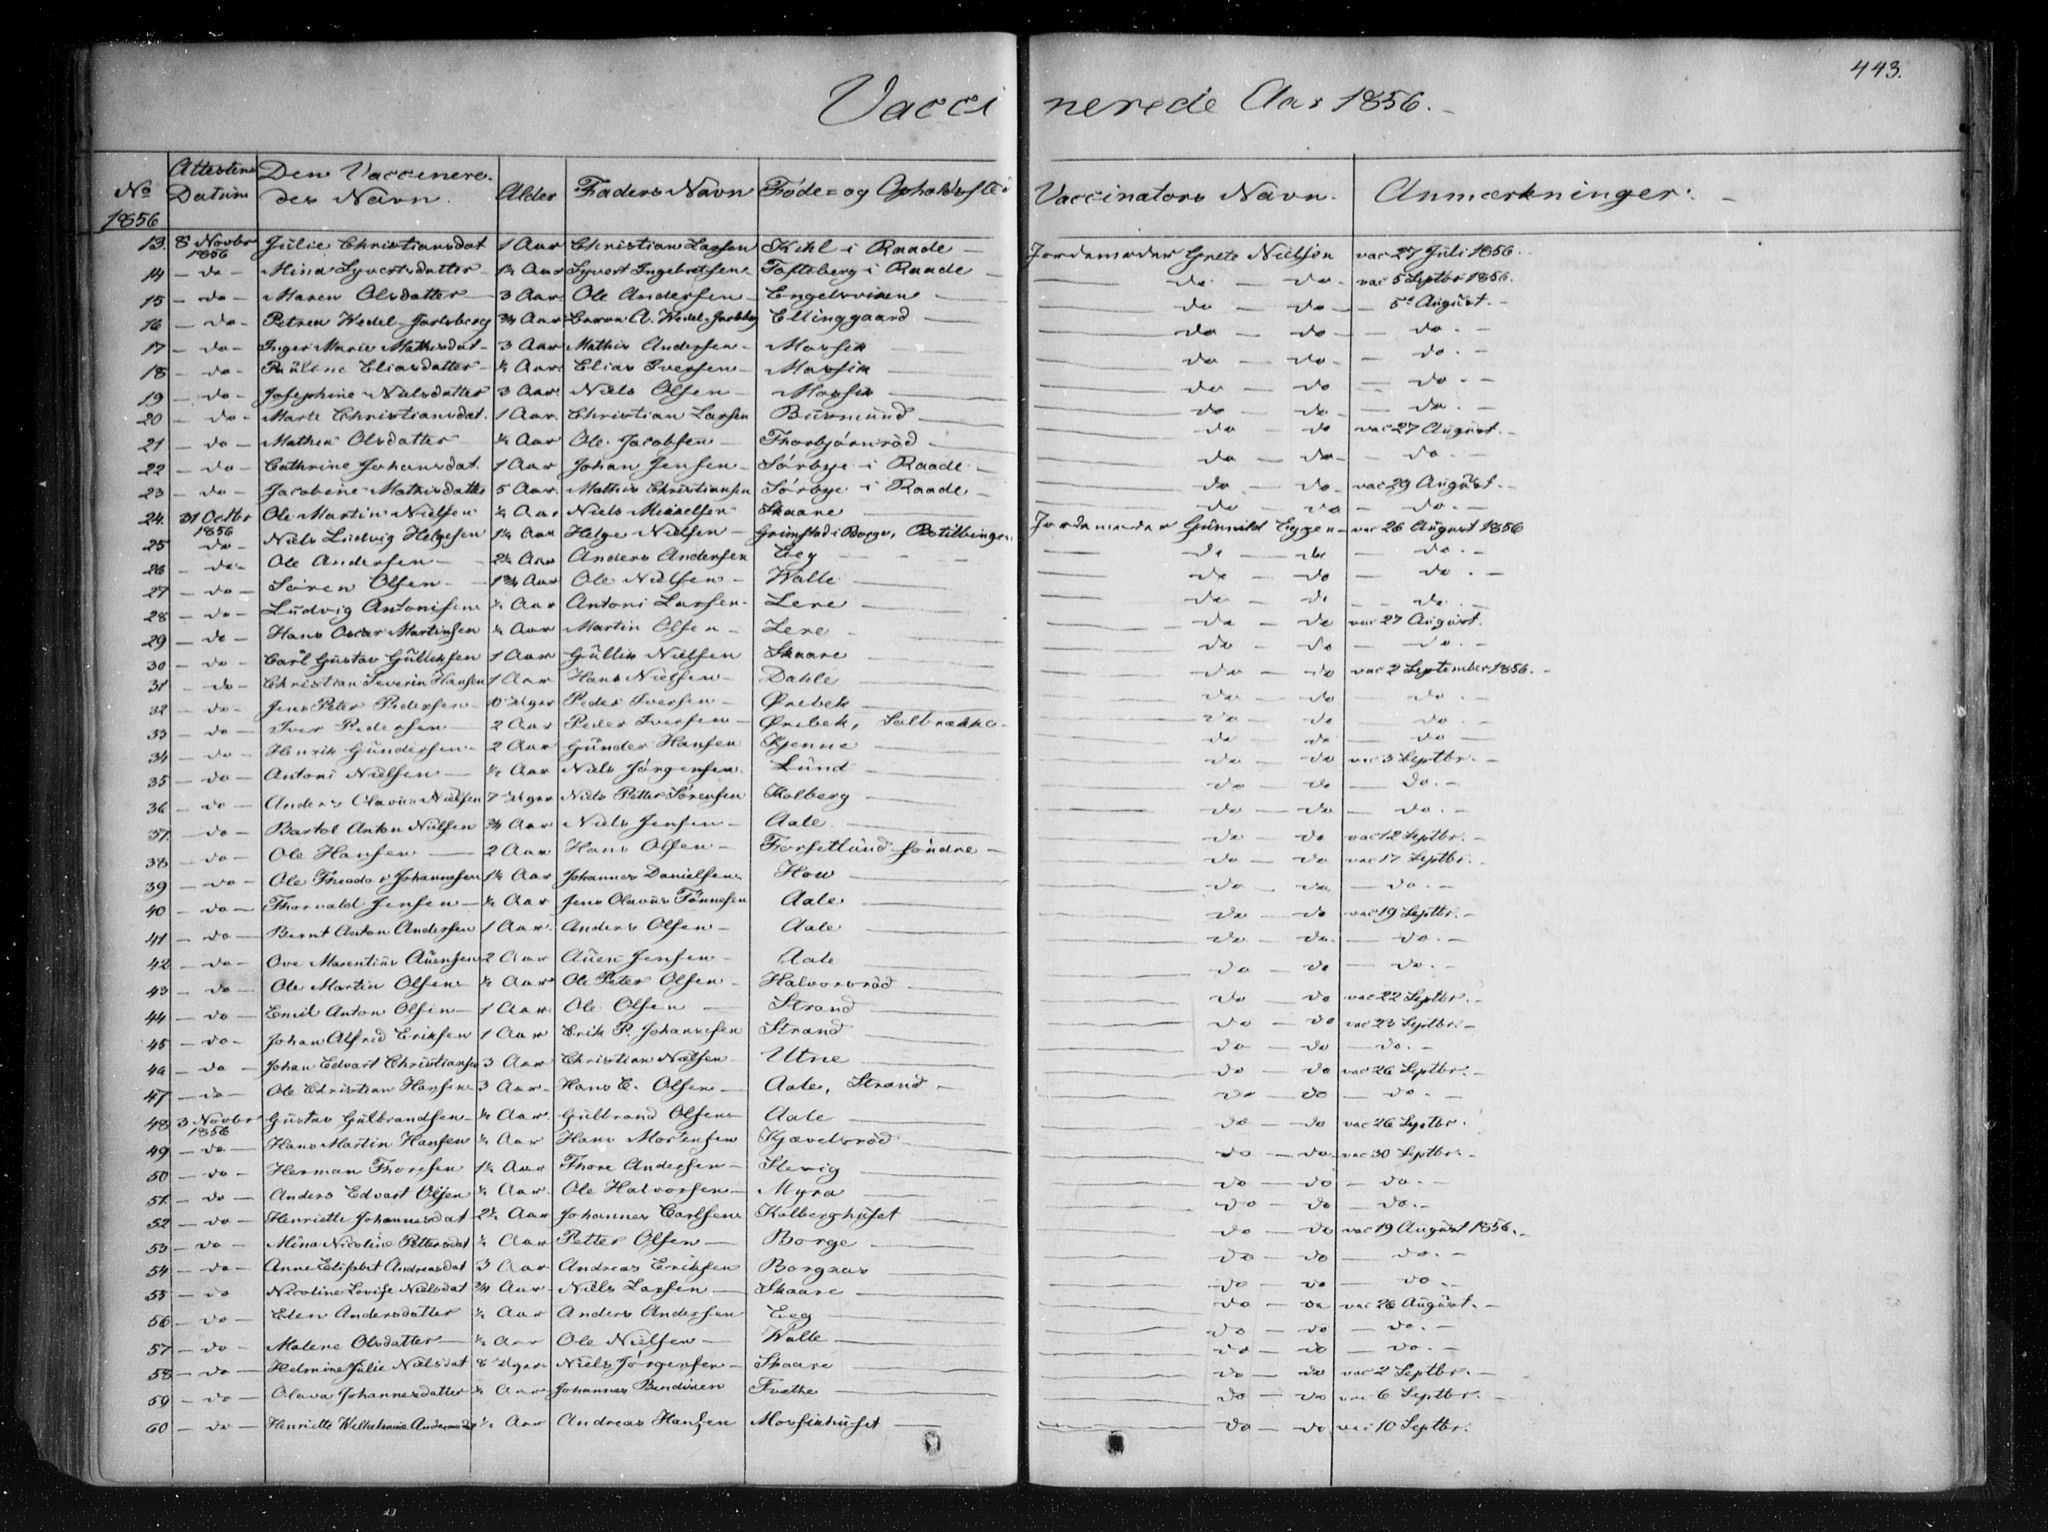 443.
Vaccinerede Aar 1856.
No 1856 | Attestens Datum | Den Vaccinere-des Navn. | Alder | Faders Navn | Føde- og Opholdssted | Vaccinators Navn. | Anmærkninger.
13. 8 Novbr 1856 Julie Christiansdat 1 Aar Christian Larsen Kihl i Raade — Jordemoder Grete Nielsen vac 27 Juli 1856.
14 — do — Mina Syvertsdatter 1½ Aar Syvert Ingebretsen Tofteberg i Raade — do — do — vac 5 Septbr 1856.
15 — do — Maren Olsdatter 3 Aar Ole Andersen Engelsviken — do — do — 5t August. —
16 — do — Petrea Wedel-Jarlsberg ¾ Aar Baron A. Wedel-Jarlsbg Ellinggaard — do — do — do. —
17 — do — Inger Marie Mathisdat 3 Aar Mathis Andersen Mossik — do — do — do. —
18 — do — Pauline Eliasdatter ½ Aar Elias Iversen Mossik — do — do — do. —
19 — do — Josephine Nielsdatter 3 Aar Niels Olsen Mossik — do — do — do. —
20 — do — Marte Christiansdat. 1 Aar Christian Larsen Buremund — do — do vac 27 August. —
21 — do — Mathea Olsdatter ½ Aar Ole Jacobsen Thorbjørnrød — do — do — do. —
22 — do — Cathrine Johansdat. 1 Aar Johan Jensen Sørbye i Raade — do — do — vac 29 August. —
23 — do — Jacobine Mathisdatter 5 Aar Mathis Christiansen Sørbye i Raade — do — do — do. —
24. 31 Octbr 1856 Ole Martin Nielsen ½ Aar Niels Mikkelsen Skaare Jordemoder Gunnild Eggen vac 26 August 1856
25 — do — Niels Ludvig Helgesen 1½ Aar Helge Nielsen Grimstad i Borge, — do — do — do. —
26 — do — Ole Andersen 2½ Aar Anders Andersen Eeg — do — do — do. —
27 — do — Søren Olsen 1¾ Aar Ole Nielsen Walle — do — do — do. —
28 — do — Ludvig Antonisen ½ Aar Antoni Larsen Lere — do — do vac 27 August.
29 — do — Hans Oscar Martinsen ½ Aar Martin Olsen Lere — do — do — do. —
30 — do — Carl Gustav Gulliksen 1 Aar Gullik Nielsen Skaare — do — do vac 2 September 1856. —
31 — do — Christian Severin Hansen 1 Aar Hans Nielsen Dahle — do — do — do. —
32 — do — Jens Peter Pedersen 10 Uger Peder Iversen Ørebek — do — do — do. —
33 — do — Iver Pedersen 2 Aar Peder Iversen Ørebek, Solbrække — do — do — do —
34 — do — Henrik Gundersen 2 Aar Gunder Hansen Kjenne — do — do vac 3 Septbr. —
35 — do — Antoni Nielsen ½ Aar Niels Jørgensen Lund — do — do — do. —
36 — do — Anders Olavus Nielsen 7 Uger Niels Petter Sørensen Kolberg — do — do — do. —
37. — do — Bartol Anton Nielsen ¾ Aar Niels Jensen Aale — do — do vac 12 Septbr. —
38 — do — Ole Hansen 2 Aar Hans Olsen Forsetlund søndre — do — do vac 17 Septbr.
39 — do — Ole Theodor Johannesen 1½ Aar Johannes Danielsen How — do — do — do. —
40 — do — Thorvald Jensen ½ Aar Jens Olavus Tønnesen Aale — do — do vac 19 Septbr. —
41 — do — Bernt Anton Andersen 1 Aar Anders Olsen Aale — do — do — do. —
42 — do — Ove Marentius Auensen 2 Aar Auen Jensen Aale — do — do — do. —
43 — do — Ole Martin Olsen ½ Aar Ole Peter Olsen Halvorsrød — do — do vac 22 Septbr. —
44 — do — Emil Anton Olsen 1 Aar Ole Olsen Strand — do — do vac 23 Septbr. —
45 — do — Johan Alfred Eriksen 1 Aar Erik P. Johannesen Strand — do — do — do. —
46 — do — Johan Edvart Christiansen 3 Aar Christian Nielsen Utne — do — do vac 26 Septbr. —
47 — do — Ole Christian Hansen 3 Aar Hans E. Olsen Aale, Strand — do — do — do. —
48 3 Novbr 1856 Gustav Gulbrandsen ½ Aar Gulbrand Olsen Aale — do — do vac 26 Septbr.
49 — do — Hans Martin Hansen ½ Aar Hans Mortensen Kjævelsrød — do — do vac 30 Septbr. —
50 — do — Herman Thoresen 1½ Aar Thore Andersen Slevig — do — do — do. —
51. — do — Anders Edvart Olsen ½ Aar Ole Halvorsen Myra — do — do — do. —
52 — do — Henriette Johannesdat 2½ Aar Johannes Carlsen Kolberghuset — do — do vac 19 August 1856. —
53 — do — Mina Nicoline Pettersdat ½ Aar Petter Olsen Borge — do — do — do. —
54 — do — Anne Elisabet Andreasdat 3 Aar Andreas Eriksen Borgaas — do — do — do. —
55 — do Nicoline Lovise Nielsdat ¾ Aar Niels Larsen Skaare — do — do vac 26 August. —
56 — do — Elen Andersdatter ½ Aar Anders Andersen Eeg — do — do — do. —
57 — do — Malene Olsdatter ½ Aar Ole Nielsen Walle — do — do — do. —
58 — do — Helmine Julie Nielsdat 8 Uger Niels Jørgensen Skaare — do — do vac 2 Septbr. —
59 — do — Olava Johannesdatter ½ Aar Johannes Bendixen Fræthe — do — do vac 6 Septbr. —
60 — do — Henriette Wilhelmine Andreasdat ½ Aar Andreas Hansen Mossikhuset — do — do vac 10 Septbr.